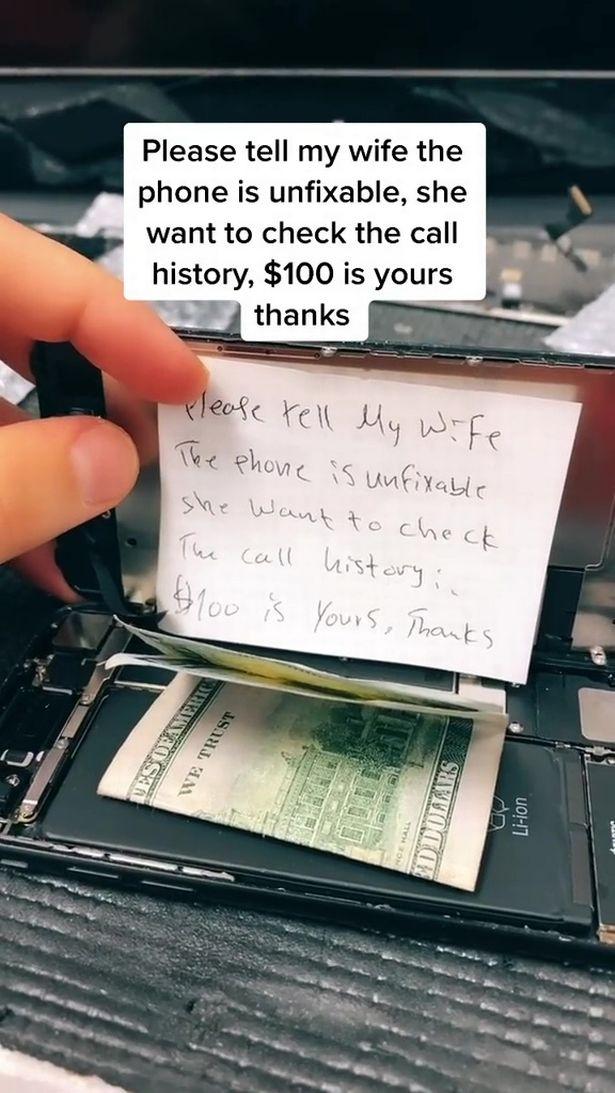 Please tell my wife the
phone is unfixable, she
want to check the call
history, $100 is yours
thanks
Please tell My Wife
The phone is unfixable
she want to check
The call history:.
$100 is Yours, Thanks
WE TRUST
Li-ion